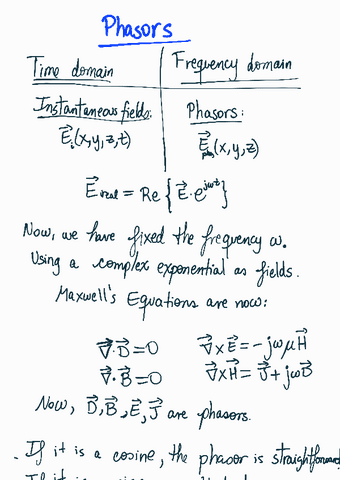 Phasors
Time domain Frequency domain
Instantaneous fields: Phasors:
E⃗ᵢ(x,y,z,t) E⃗ₚₕ(x,y,z)
E⃗real = Re { E⃗·e^jωt }
Now, we have fixed the frequency ω.
Using a complex exponential as fields.
Maxwell's Equations are now:
∇⃗·D⃗=0 ∇⃗xE⃗=-jωμH⃗
∇⃗·B⃗=0 ∇⃗xH⃗=J⃗+jωD⃗
Now, D⃗,B⃗,E⃗,J⃗ are phasors.
. If it is a cosine, the phasor is straightforward
If it is